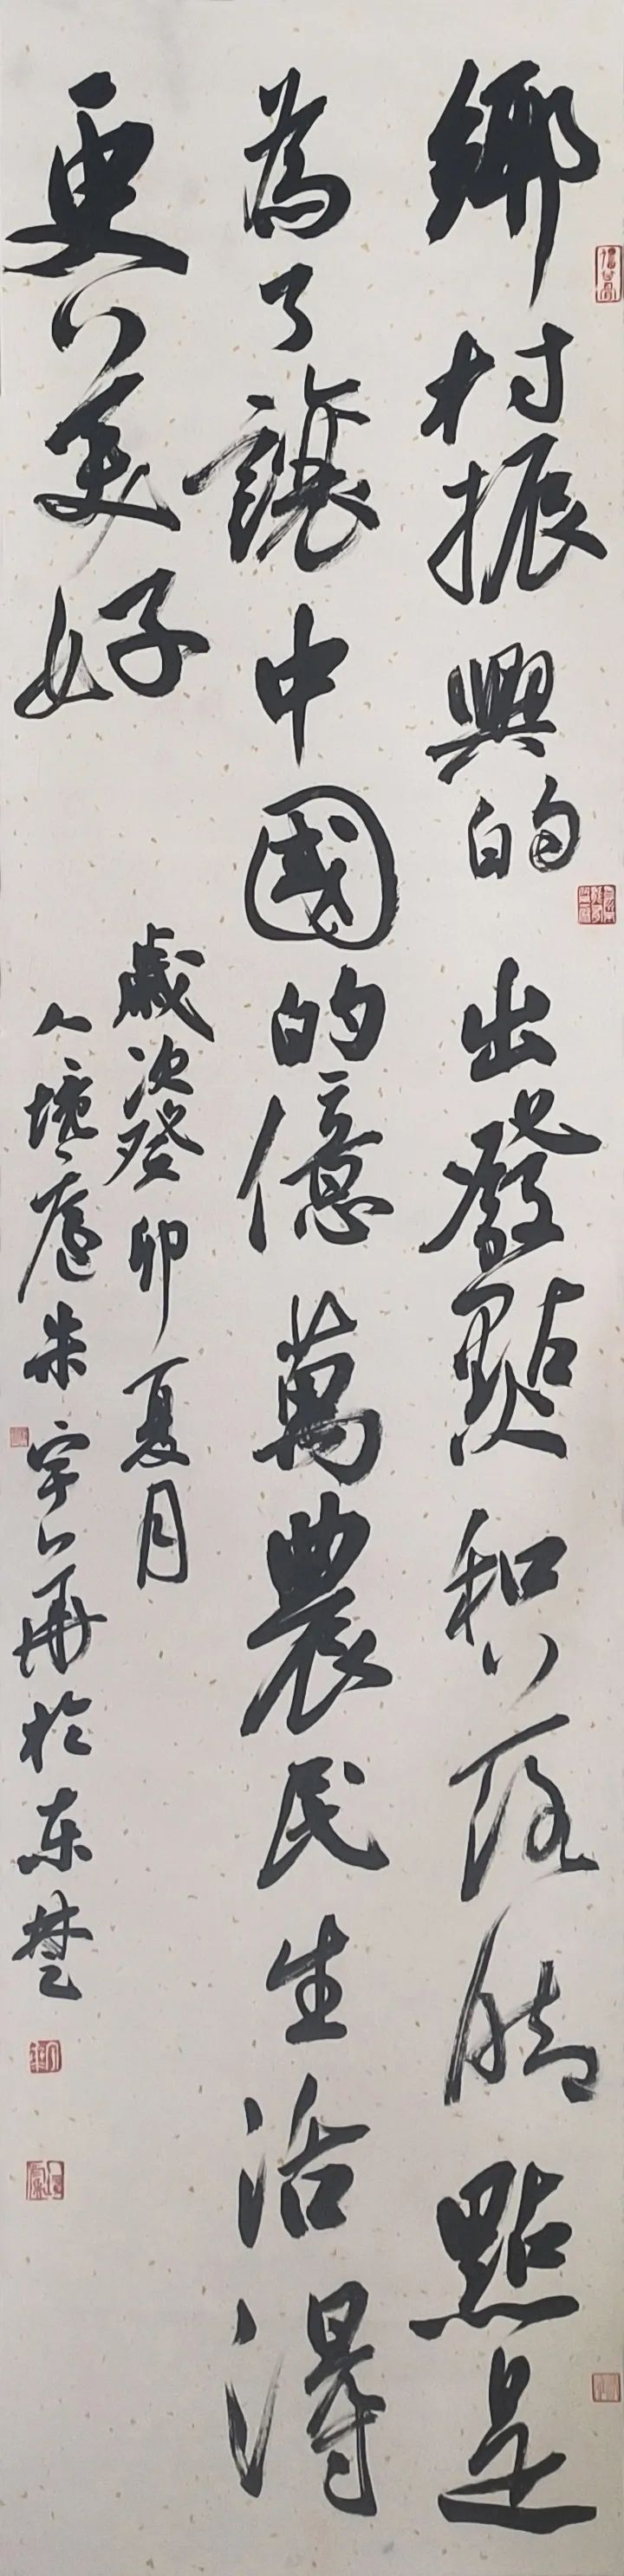 鄉村振興的出發點和落腳點是
為了讓中國的億萬農民生活得
更美好
歲次癸卯夏月
人境廬朱宇華於东楚